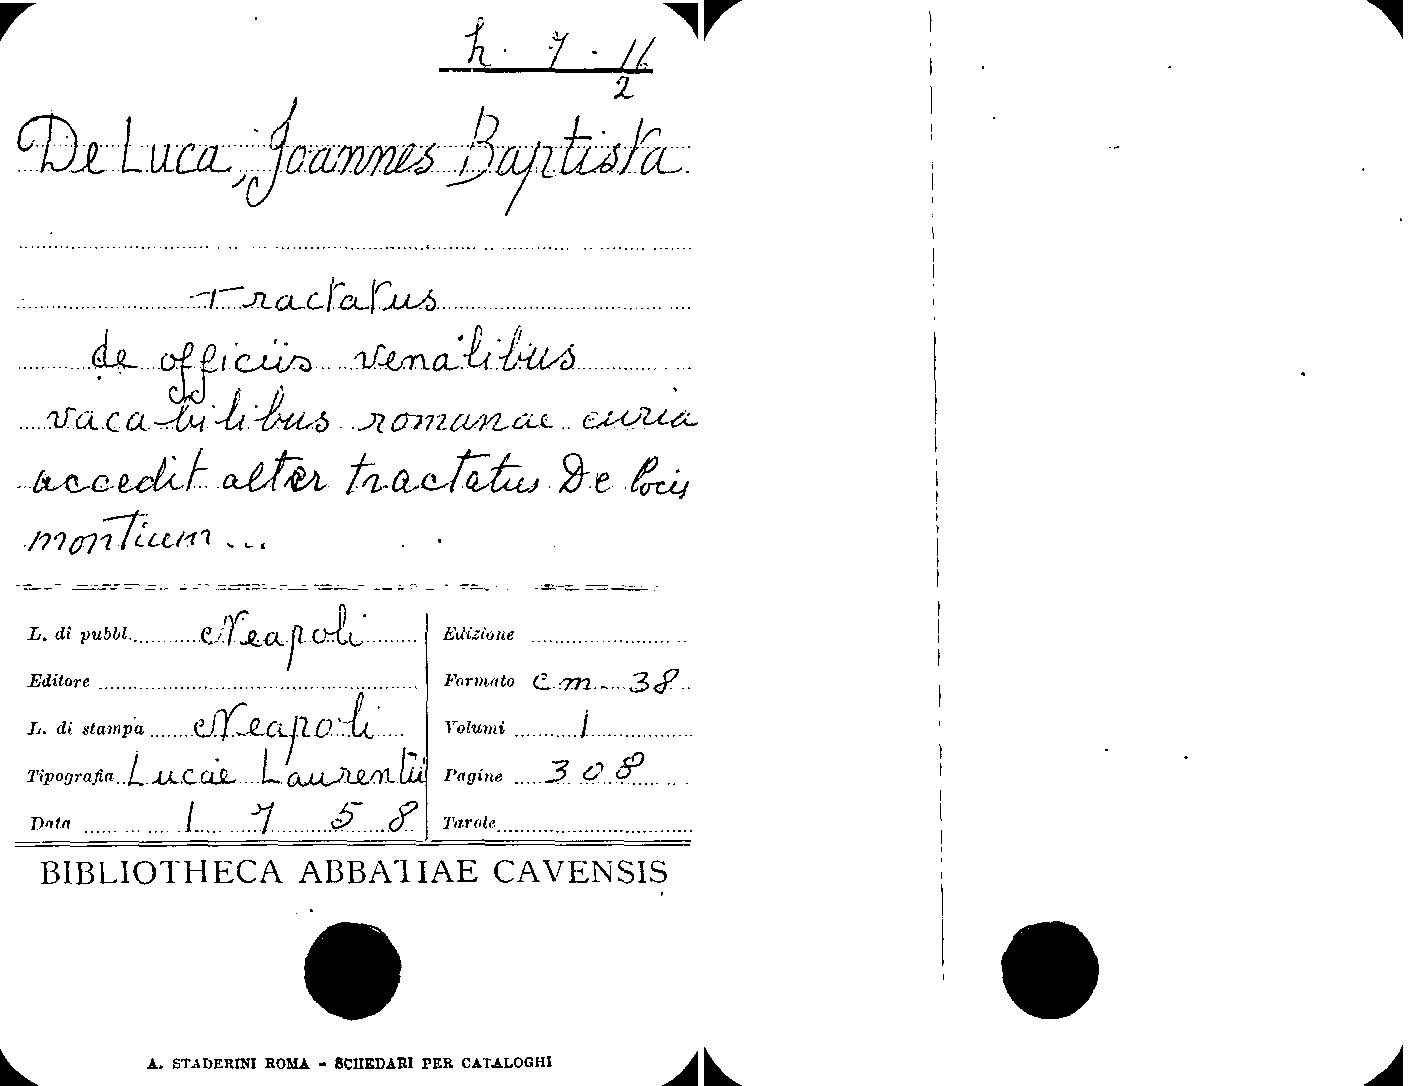 h. 7. 16
2
De Luca, Joannes Baptista
Tractatus
de officiis venalibus
vacabilibus romanae curia
accedit alter tractatus De locis
montium...
L. di pubbl. Neapoli
Editore
L. di stampa Neapoli
Tipografia Lucae Laurentii
Data 1758
Edizione
Formato cm. 38
Volumi 1
Pagine 308
Tavole
BIBLIOTHECA ABBATIAE CAVENSIS
A. STADERINI ROMA - SCHEDARI PER CATALOGHI